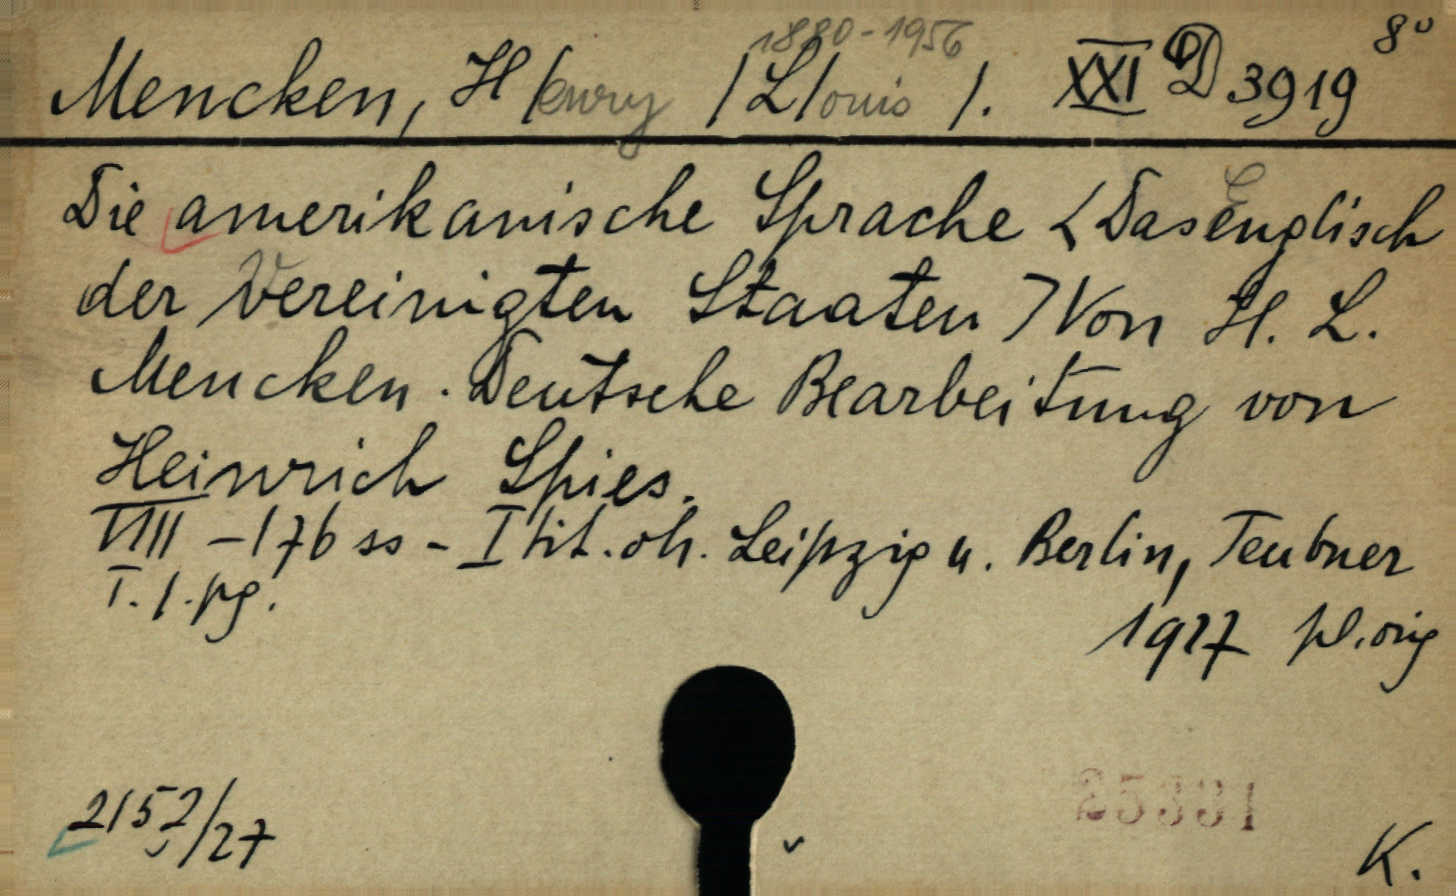 1880-1956
Mencken, H/enry /L/ouis /. XXI D 3919 8°
Die amerikanische Sprache <Das Englisch
der Vereinigten Staaten> Von H. L.
Mencken. Deutsche Bearbeitung von
Heinrich Spies.
VIII -176 ss - I tit. oh. Leipzig u. Berlin, Teubner
T. 1. pg.
1927 pl. orig
2152/27
K.